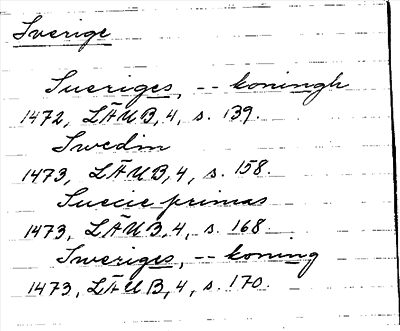 Sverige
Sueriges, -- koningh
1472, LÄUB, 4, s. 139.
Swedin
1473, LÄUB, 4, s. 158.
Suecie primas
1473, LÄUB, 4, s. 168.
Sweriges, -- koning
1473, LÄUB, 4, s. 170.